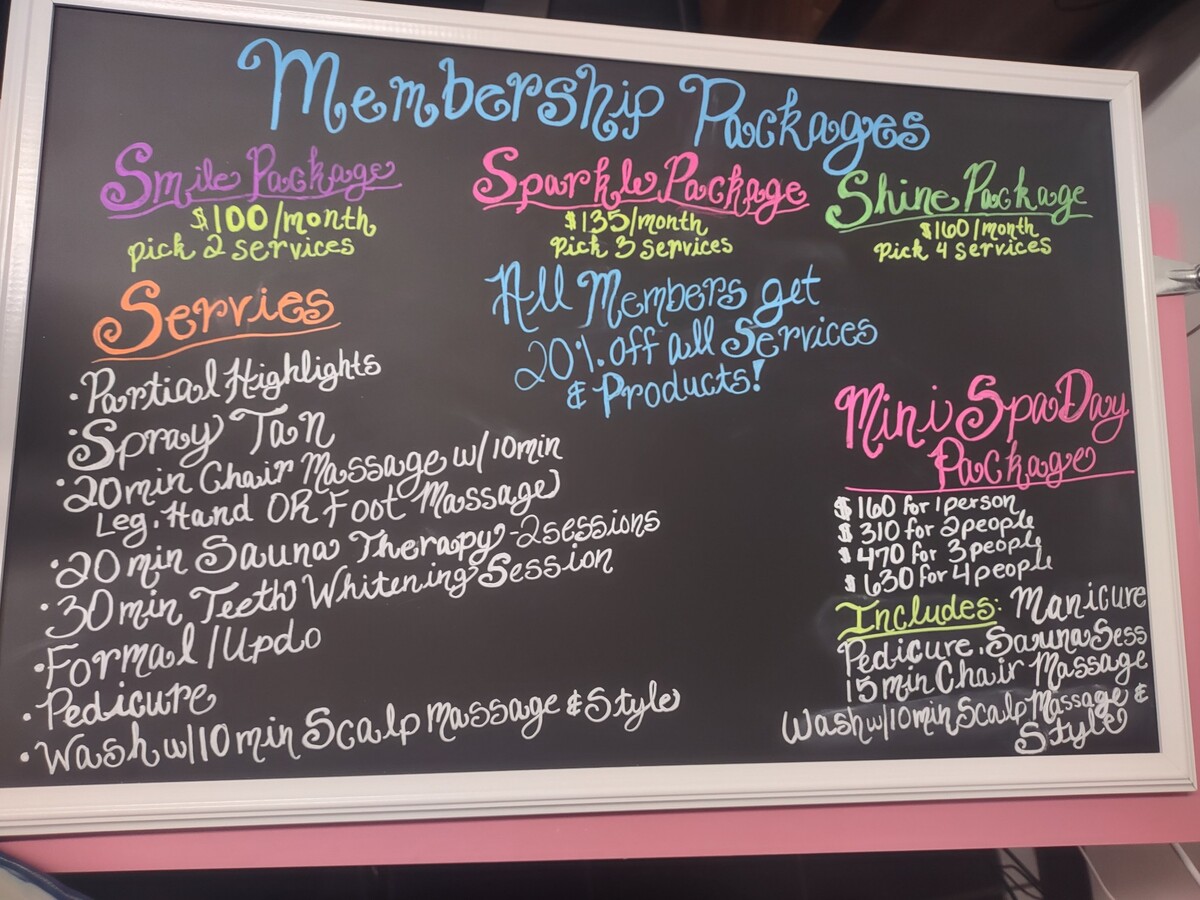 Membership Packages
Smile Package
$100/month
pick 2 services
Sparkle Package
$135/month
Pick 3 services
Shine Package
$160/month
Pick 4 services
All Members get
20% off all Services
& Products!
Servies
•Partial Highlights
•Spray Tan
•20min Chair Massage w/10min
Leg, Hand OR Foot Massage
•20 min Sauna Therapy-2sessions
•30min Teeth Whitening Session
•Formal/Updo
•Pedicure
•Wash w/10 min Scalp Massage & Style
Mini Spa Day
Package
$160 for 1 person
$310 for 2 people
$470 for 3 people
$630 for 4 people
Includes: Manicure
Pedicure, Sauna Sess
15 min Chair Massage
Wash w/10min Scalp Massage &
Style